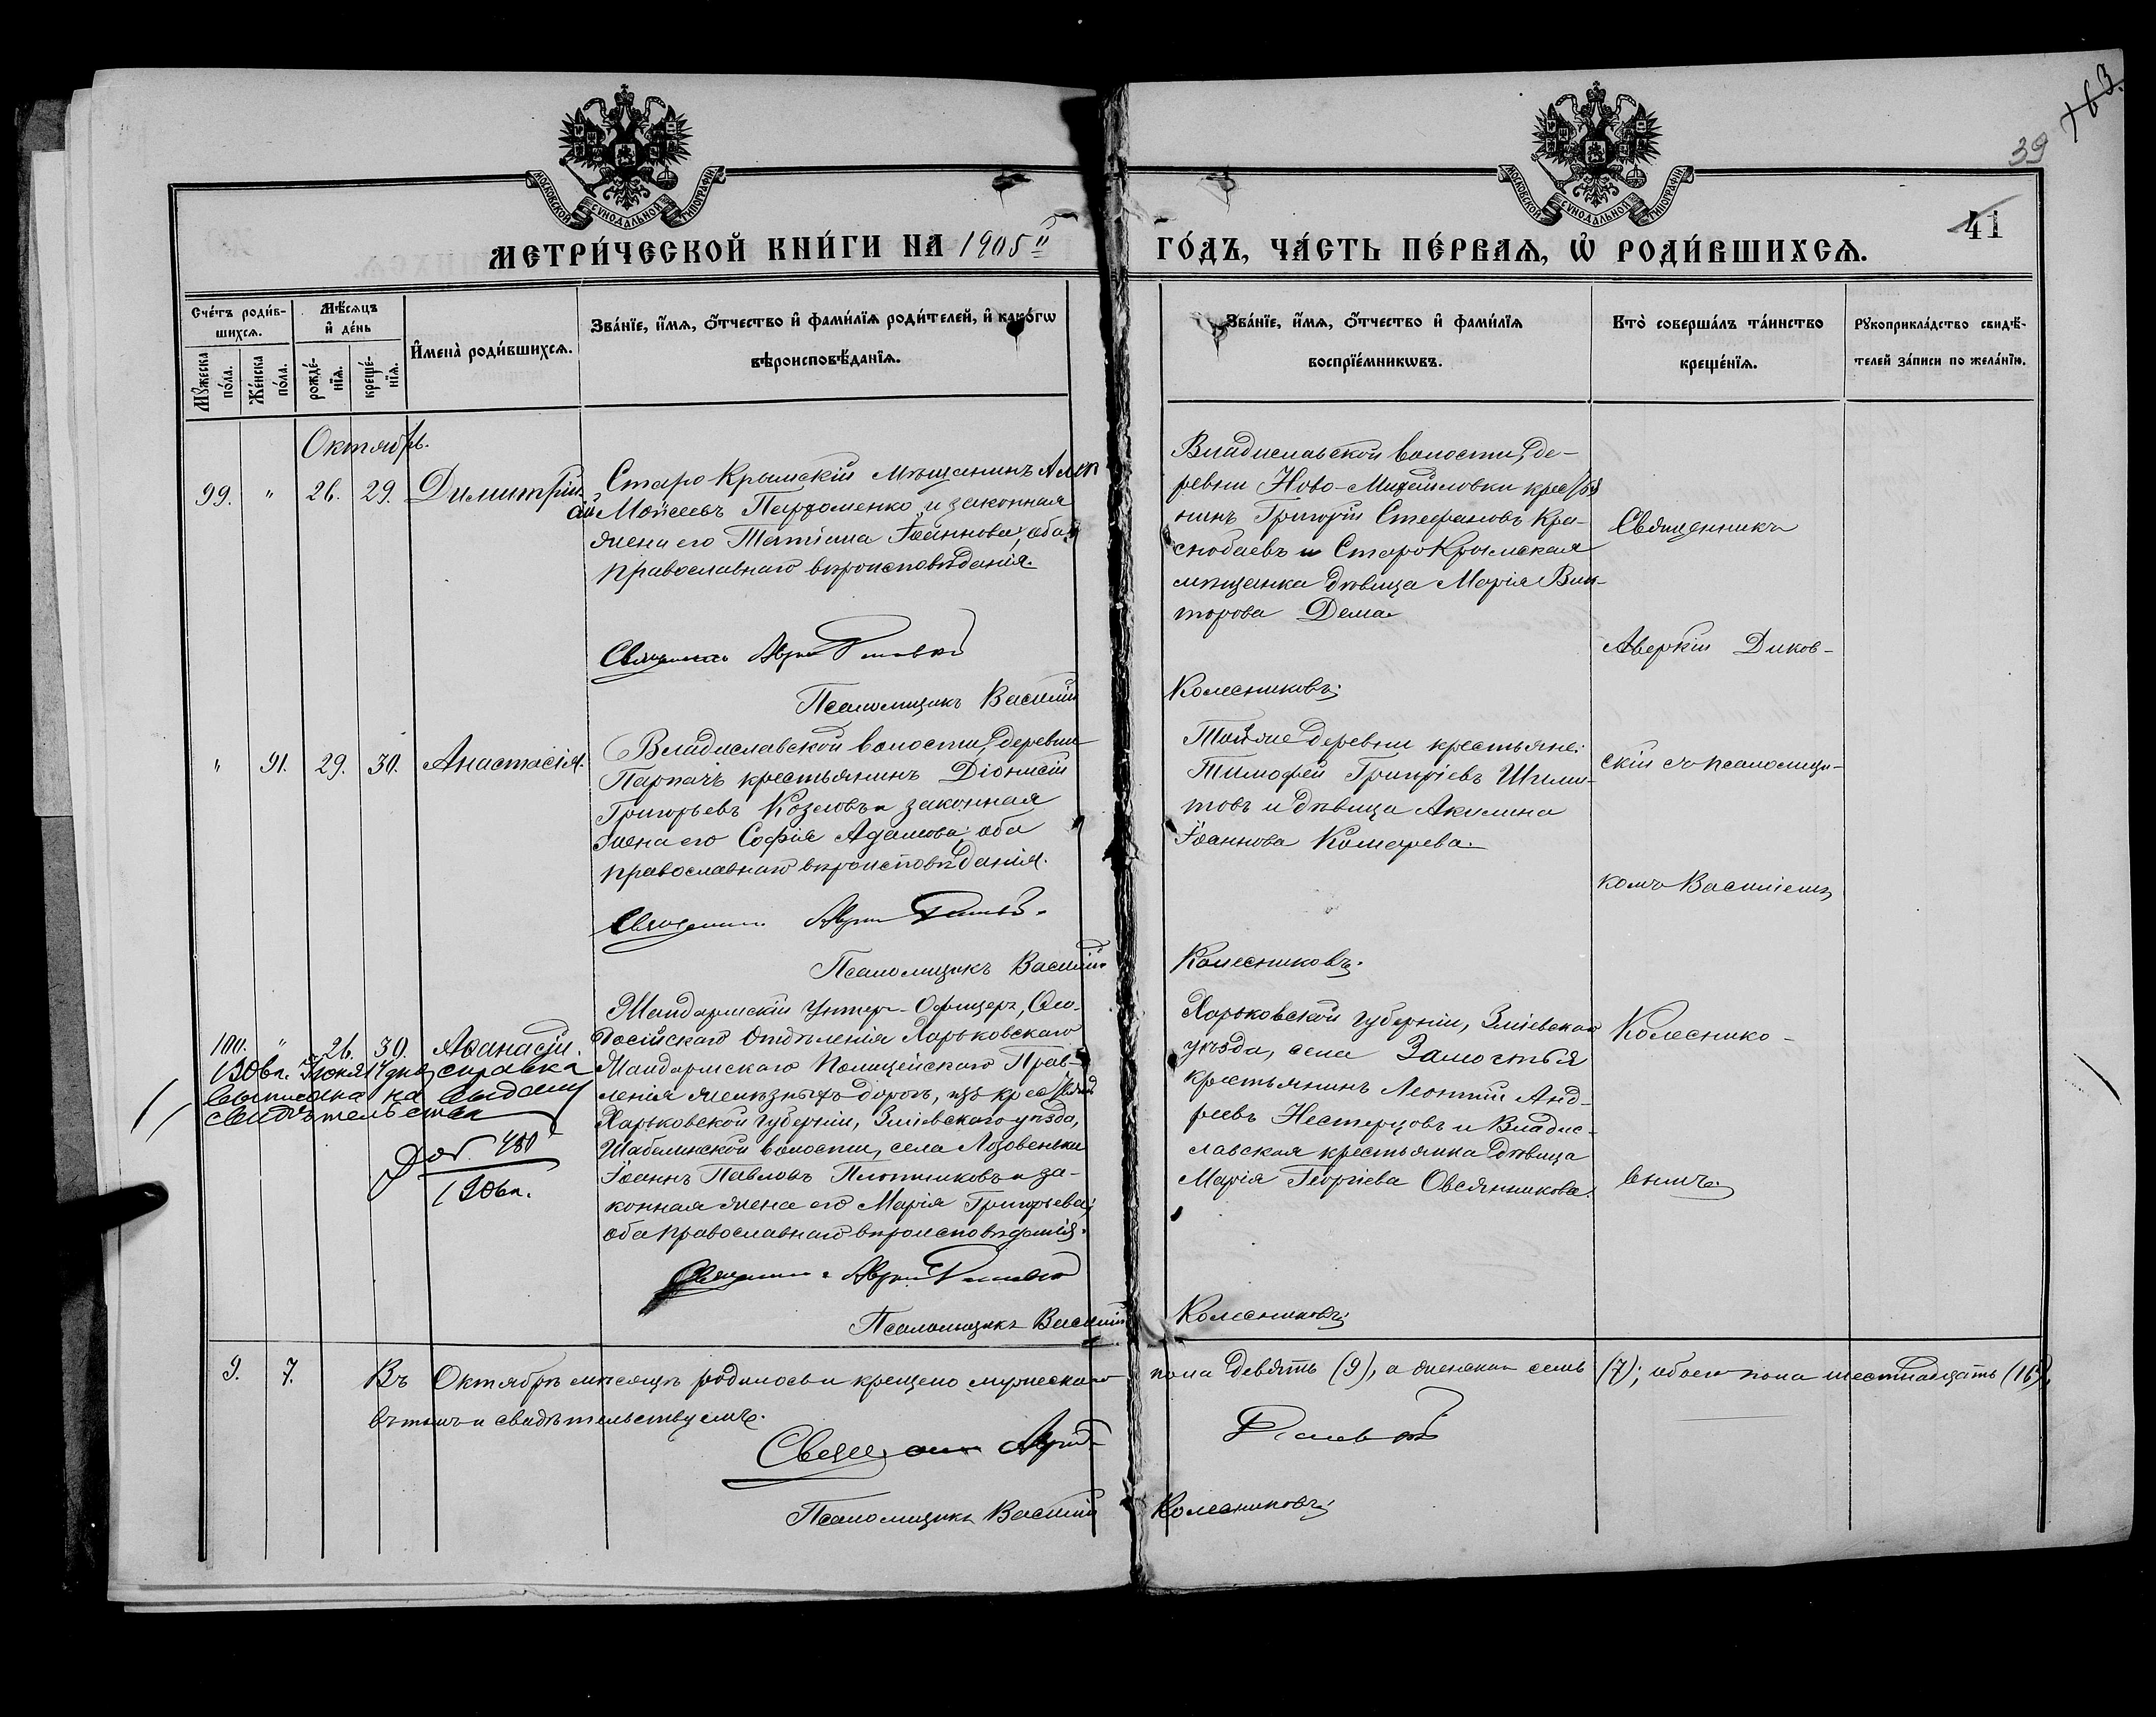 163.
39
41
МОСКОВСКОЙ СѴНОДАЛЬНОЙ ТИПОГРАФІИ
МОСКОВСКОЙ СѴНОДАЛЬНОЙ ТИПОГРАФІИ
МЕТРИ́ЧЕСКОЙ КНИ́ГИ НА 1905й ГО́ДЪ, ЧА́СТЬ ПЕ́РВАѦ, Ѡ҆ РОДИ́ВШИХСѦ.
Сче́тъ роди́в-
шихсѧ.
Мꙋжеска
по́ла.
Же́нска
по́ла.
Мѣ́сѧцъ
и҆ де́нь
рожде́-
нїѧ.
креще́-
нїѧ.
И҆мена̀ роди́вшихсѧ.
Зва́нїе, и҆́мѧ, ѻ҆́тчество и҆ фами́лїѧ роди́телей, и҆ како́гѡ
вѣроисповѣ́данїѧ.
Зва́нїе, и҆́мѧ, ѻ҆́тчество и҆ фами́лїѧ
воспрїе́мникѡвъ.
Кто̀ соверша́лъ та́инство
креще́нїѧ.
Рꙋкоприкла́дство свидѣ́-
телей за́писи по жела́нїю.
Октябрь.
99. " 26. 29. Димитрій.
Старо Крымскій мѣщанинъ
Моисеевъ Парфоменко и законная
жена его Татіана Іоаннова, оба
православнаго вѣроисповѣданія.
Священникъ
Псаломщикъ Василій Колесниковъ.
Владиславской волости, де-
ревни Ново-Михайловки крестья
нинъ Григорій Стефановъ Кра-
снобаевъ и Старо Крымская
мѣщанка дѣвица Марія Вик-
торова Дема.
Священникъ
Аверкій Диков-
скій съ псаломщи-
комъ Василіемъ
Колеснико-
вымъ.
" 91. 29. 30. Анастасія.
Владиславской волости, деревни
Парпачъ крестьянинъ Діонисій
Григорьевъ Козловъ и законная
жена его Софія Адамова, оба
православнаго вѣроисповѣданія.
Священникъ
Псаломщикъ Василій Колесниковъ.
Той же деревни крестьяне:
Тимофей Григоріевъ
товъ и дѣвица Акилина
Іоаннова Комарева.
100. " 26. 30. Аѳанасій.
Жандармскій Унтеръ-Офицеръ, Ѳео-
досійскаго Отдѣленія Харьковскаго
Жандармскаго Полицейскаго Прав-
ленія желѣзныхъ дорогъ, изъ крестьянъ
Харьковской губерніи, Зміевскаго уѣзда,
Шабелинской волости, села Лозовеньки
Іоаннъ Павловъ Плотниковъ и за-
конная жена его Марія Григорьева;
оба православнаго вѣроисповѣданія.
Священникъ
Псаломщикъ Василій Колесниковъ.
Харьковской губерніи, Зміевскаго
уѣзда, села Замостья
крестьянинъ Леонтій Анд-
реевъ Нестерцовъ и Владис-
лавская крестьянка дѣвица
Марія Георгіева Овсянникова.
Іюня 14 дня справка
выписана на выдачу
свидѣтельства
9. 7. Въ Октябрѣ мѣсяцѣ родилось и крещено мужескаго пола девять (9), а женскаго семь (7); обоего пола шестнадцать (16),
въ томъ и свидѣтельствуемъ.
Священникъ
Псаломщикъ Василій Колесниковъ.